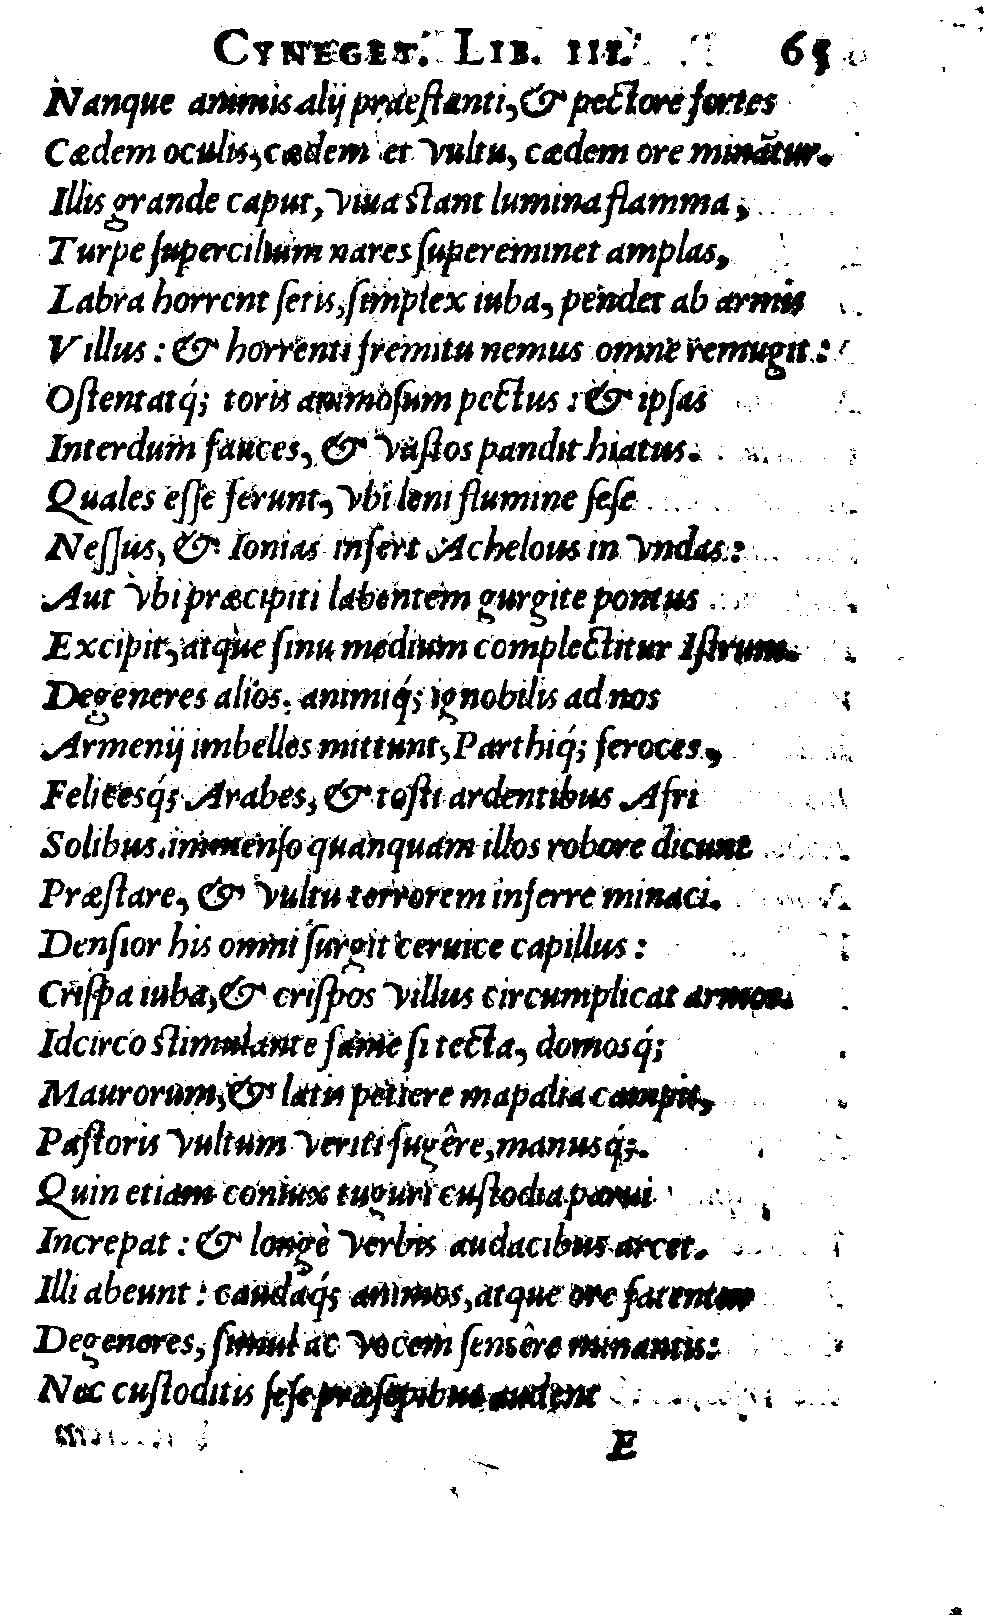 CYNEGET. LIB. III. 65
Nanque animis alij præſtanti, & pectore fortes
Cædem oculis, cædem et vultu, cædem ore minãtur.
Illis grande caput, viua ſtant lumina flamma,
Turpe ſupercilium nares ſupereminet amplas,
Labra horrent ſetis, ſimplex iuba, pendet ab armis
Villus: & horrenti fremitu nemus omne remugit:
Oſtentatq́; toris animoſum pectus: & ipſas
Interdum fauces, & vaſtos pandit hiatus.
Quales eſſe ferunt, vbi leni flumine ſeſe
Neſſus, & Ionias inſert Achelous in vndas:
Aut vbi præcipiti labentem gurgite pontus
Excipit, atque ſinu medium complectitur Iſtrum.
Degeneres alios, animiq́; ignobilis ad nos
Armenij imbelles mittunt, Parthiq́; feroces,
Felicesq́; Arabes, & toſti ardentibus Afri
Solibus. immenſo quanquam illos robore dicunt
Præſtare, & vultu terrorem inferre minaci.
Denſior his omni ſurgit ceruice capillus:
Criſpa iuba, & criſpos villus circumplicat armos.
Idcirco ſtimulante fame ſi tecta, domosq́;
Maurorum, & latis petiere mapalia campis,
Paſtoris vultum veriti fugêre, manusq́;.
Quin etiam coniux tugurî cuſtodia parui
Increpat: & longè verbis audacibus arcet.
Illi abeunt: caudaq́; animos, atque ore fatentur
Degeneres, ſimul ac vocem ſensêre minantis:
Nec cuſtoditis ſeſe præſepibus audent
E